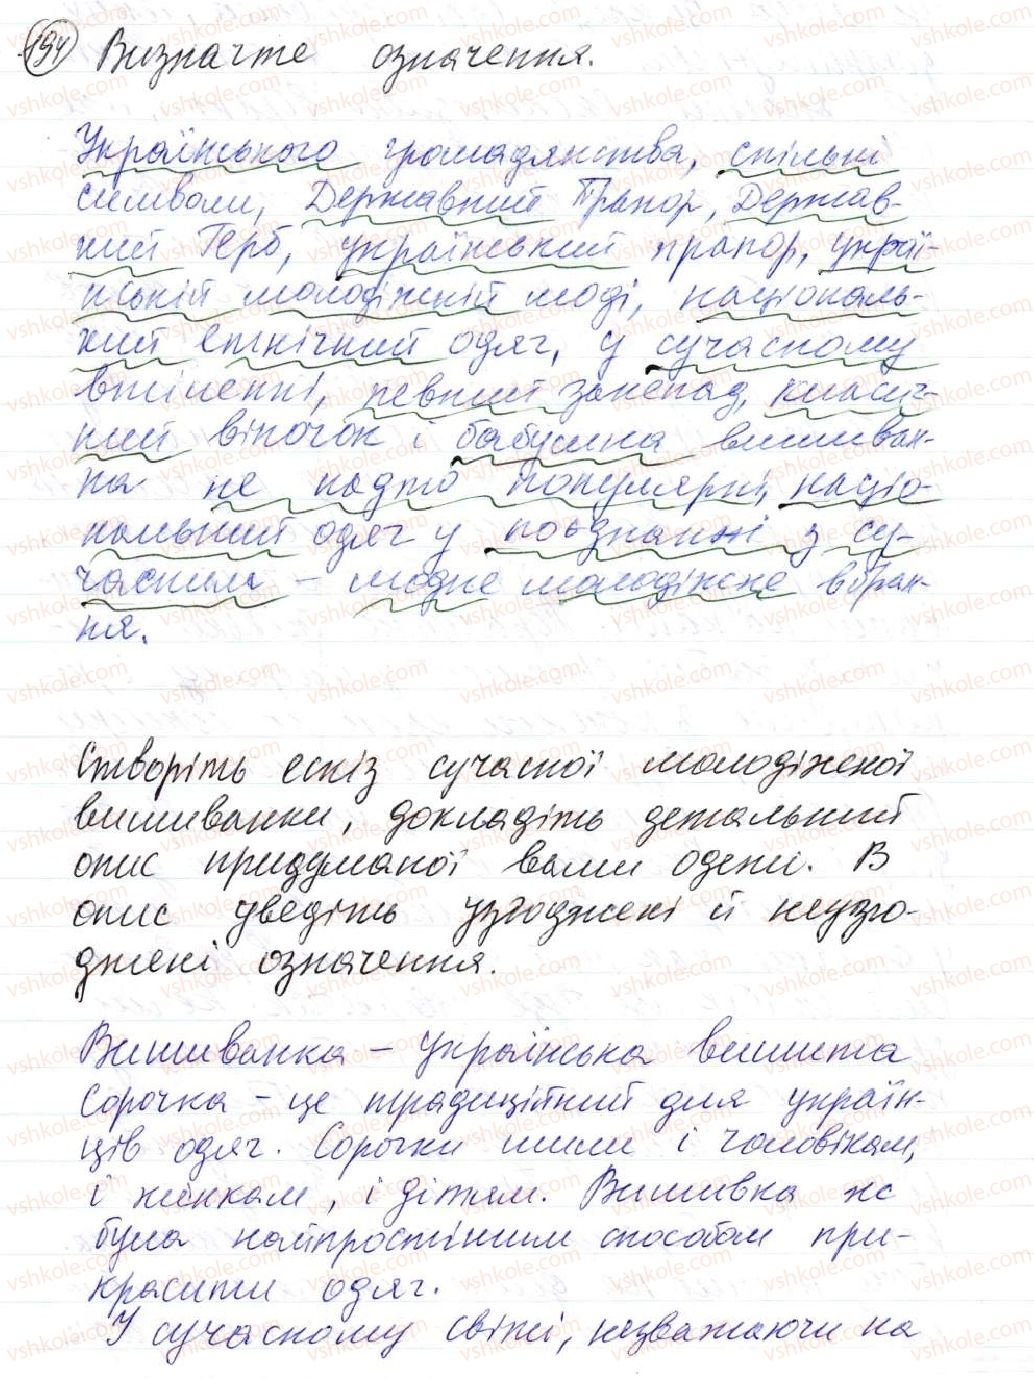 194 Визначте означення.
Українського громадянства, спільні
символи, Державний Прапор, Держав-
ний Герб, український прапор, украї-
нській молодіжній моді, національ-
ний етнічний одяг, у сучасному
втіленні, певний занепад, класич-
ний віночок і бабусина вишиван-
ка не надто популярні, націо-
нальний одяг у поєднанні з су-
часним – модне молодіжне вбран-
ня.
Створіть ескіз сучасної молодіжної
вишиванки, докладіть детальний
опис придуманої вами одежі. В
опис уведіть узгоджені й неузго-
джені означення.
Вишиванка – українська вишита
сорочка – це традиційний для україн-
ців одяг. Сорочки шили і чоловікам,
і жінкам, і дітям. Вишивка же
була найпростішим способом при-
красити одяг.
У сучасному світі, незважаючи на